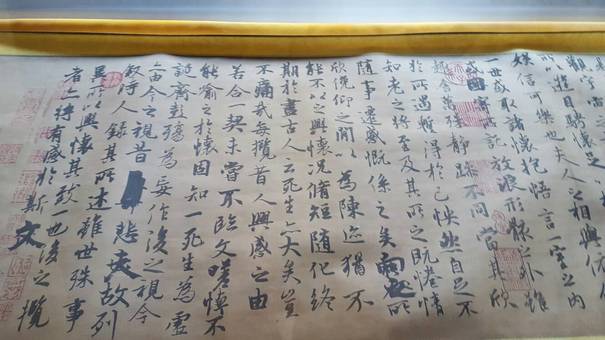 觀宇宙之
所以遊目騁懷
娛信可樂也夫人之相與俯仰
一世或取諸懷抱悟言一室之內
或因寄所託放浪形骸之外雖
趣舍萬殊靜躁不同當其欣
於所遇暫得於己怏然自足不
知老之將至及其所之既惓情
隨事遷感慨係之矣向之所
欣俛仰之閒以為陳迹猶不
能不以之興懷況脩短隨化終
期於盡古人云死生亦大矣豈
不痛哉每攬昔人興感之由
若合一契未嘗不臨文嗟悼不
能喻之於懷固知一死生為虛
誕齊彭殤為妄作後之視今
亦由今之視昔悲夫故列
敘時人錄其所述雖世殊事
異所以興懷其致一也後之攬
者亦將有感於斯文